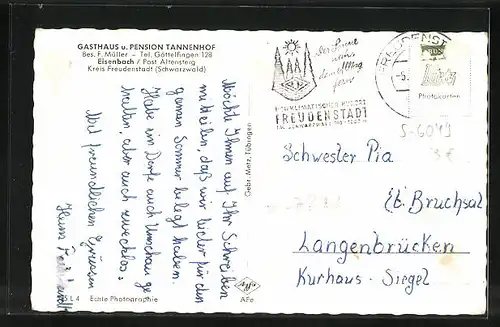 GASTHAUS u. PENSION TANNENHOF
Bes. F. Müller - Tel. Göttelfingen 128
Eisenbach / Post Altensteig
Kreis Freudenstadt (Schwarzwald)
Möcht Ihnen auf Ihr Schreiben
mitteilen, daß wir leider für den
ganzen Sommer belegt haben.
Habe im Dorfe auch Umschau ge
halten, aber auch zwecklos.
Mit freundlichen Grüssen
Echte Photographie
Gebr. Metz, Tübingen
Agfa
AFe
Der Sonne
näher
dem Alltag
fern
HEILKLIMATISCHER KURORT
FREUDENSTADT
IM SCHWARZWALD
FREUDENST
Photokarten
S-6049
3€
Schwester Pia
(b. Bruchsal
Langenbrücken
Kurhaus - Siegel